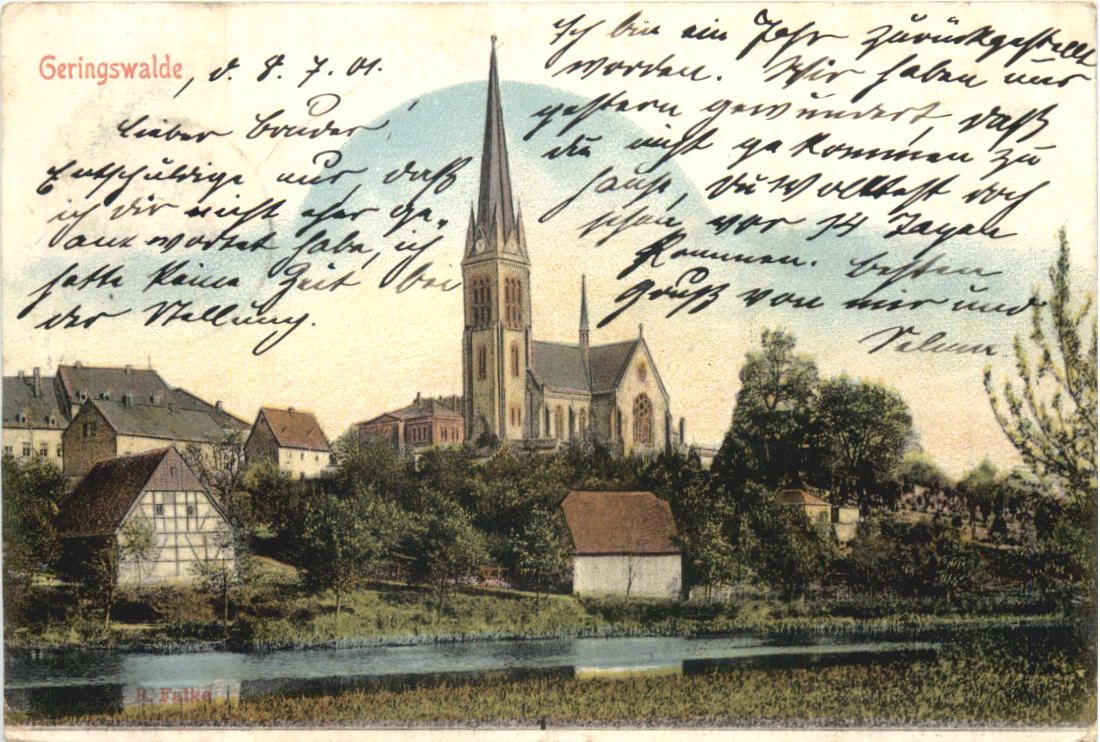 Geringswalde, d. 8. 7. 01.
lieber Bruder,
Entschuldige nur, daß
ich dir nicht eher ge„
antwortet habe, ich
hatte keine Zeit bei
der Stellung.
Ich bin ein Jahr zurückgestellt
worden. Wir haben uns
gestern gewundert, daß
du nicht gekommen zu
hause, Du wolltest doch
schon vor 14 Tagen
kommen. besten
Gruß von mir und
R. Falke